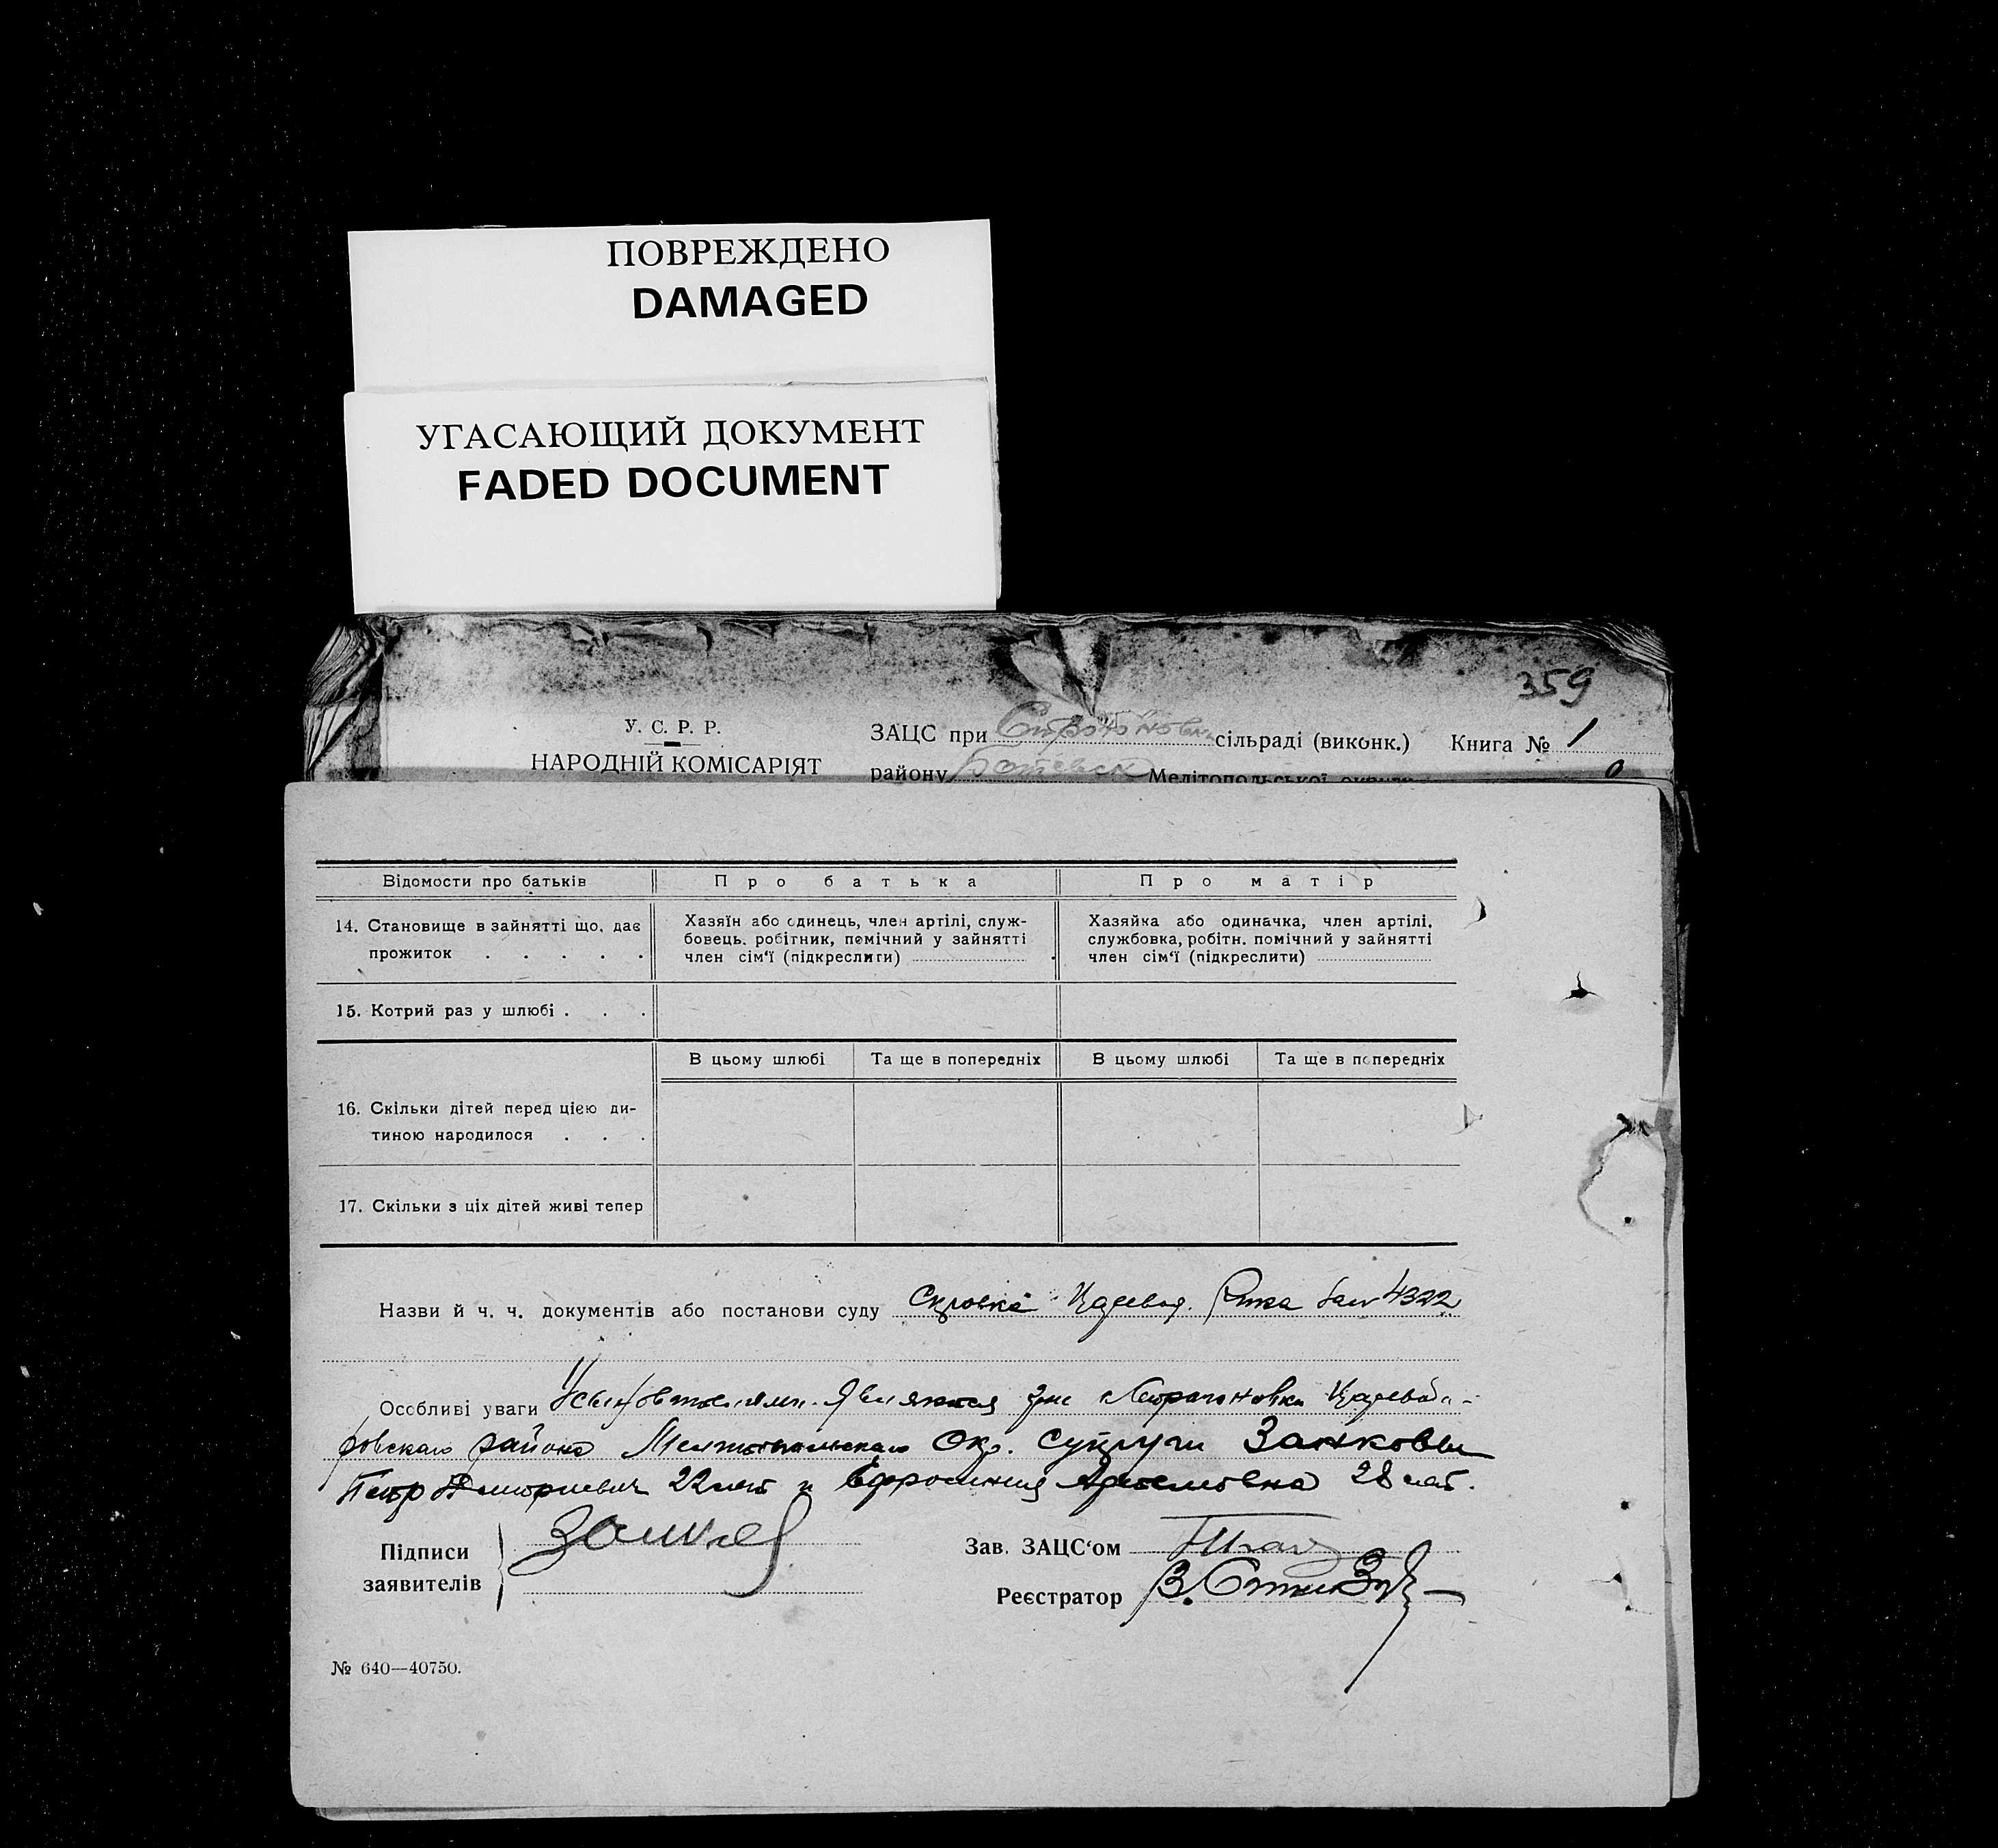 ПОВРЕЖДЕНО
DAMAGED
УГАСАЮЩИЙ ДОКУМЕНТ
FADED DOCUMENT
359
У. С. Р. Р.
НАРОДНІЙ КОМІСАРІЯТ
ЗАЦС при сільраді (виконк.) Книга № 1
району Мелітопольської округи
Відомости про батьків Про батька Про матір
14. Становище в зайнятті що, дає прожиток . . . . .
Хазяїн або одинець, член артілі, служ-
бовець, робітник, помічний у зайнятті
член сім'ї (підкреслити)
Хазяйка або одиначка, член артілі,
службовка, робітн. помічний у зайнятті
член сім'ї (підкреслити)
15. Котрий раз у шлюбі . . .
В цьому шлюбі Та ще в попередніх В цьому шлюбі Та ще в попередніх
16. Скільки дітей перед цією ди-
тиною народилося . . .
17. Скільки з ціх дітей живі тепер
Назви й ч. ч. документів або постанови суду Справка Рика 4322
Особливі уваги Усыновителями являются
ровскаго района Мелитопольскаго Окр. супруги Занковы
Петр 22 лет и Ефросиния Артемовна 28 лет.
Підписи
заявителів
Зав. ЗАЦС'ом
Реєстратор
№ 640—40750.